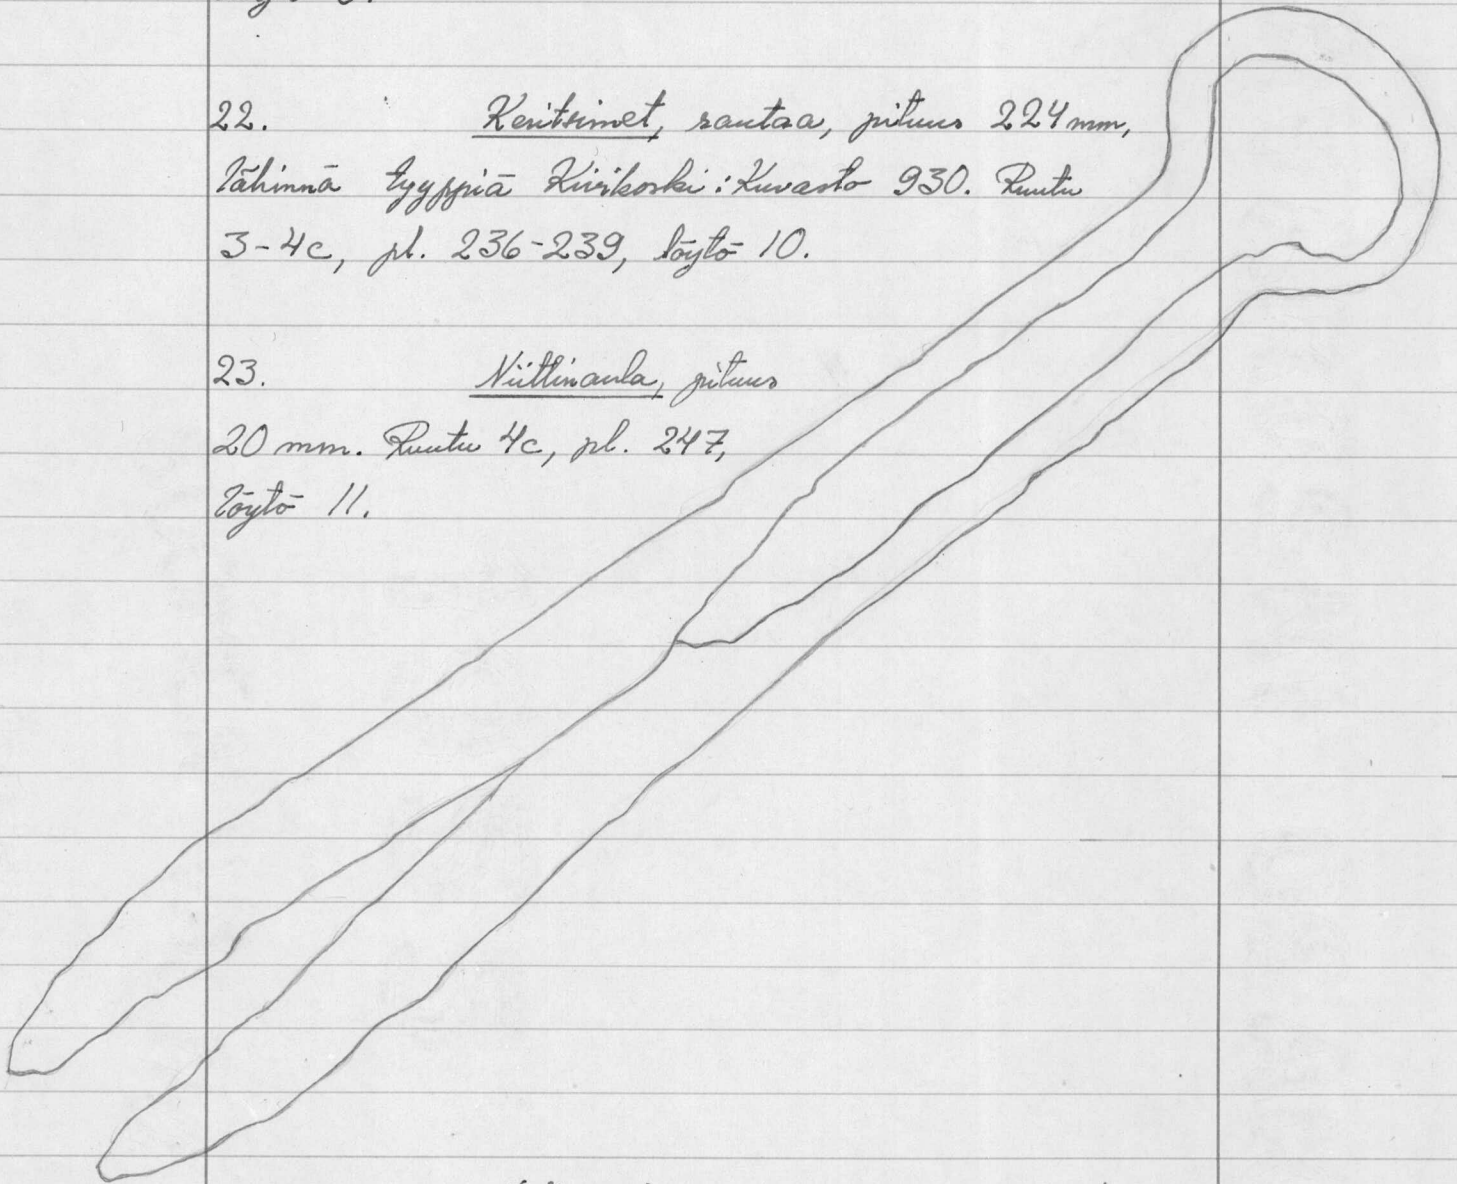 22. Keritsimet, rautaa, pituus 224 mm,
lähinnä tyyppiä Kivikoski: Kuvasto 930. Ruutu
3-4c, pl. 236-239, löytö 10.
23. Niittinaula, pituus
20 mm. Ruutu 4c, pl. 247,
löytö 11.